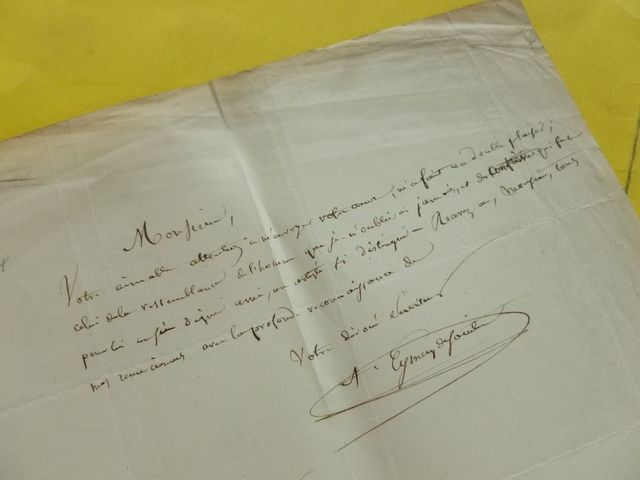 Monsieur,
Votre aimable attention à m'envoyer votre œuvre, m'a fait un double plaisir;
celui de la ressemblance de l'homme que je n'oublierai jamais, et du qui fut
pour lui aussi digne ami, un artiste si distingué — Recevez en, Monsieur, tous
mes remerciements avec la profonde reconnaissance de
Votre dévoué serviteur
A. Eymery de